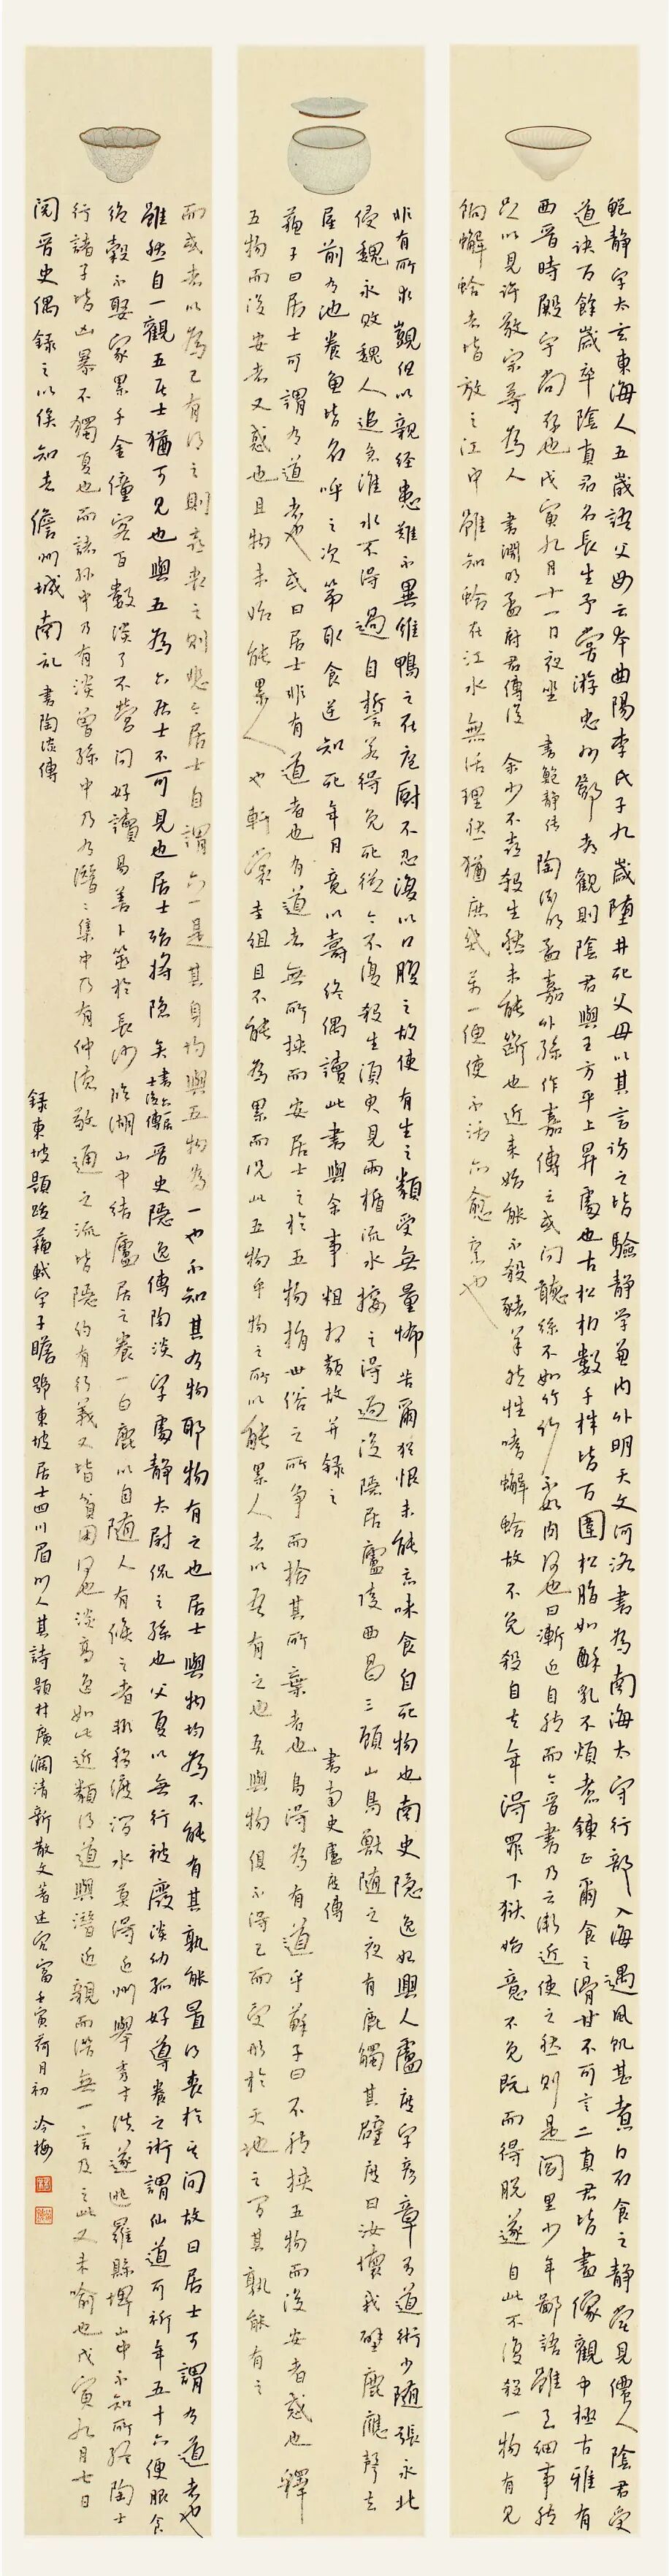 鮑静字太玄東海人五歲語父母云本曲陽李氏子九歲墮井死父母以其言訪之皆驗静学兼内外明天文河洛書為南海太守行部入海遇風飢甚煮白石食之静嘗見僊人陰君受
道诀百餘歲卒陰真君名長生予嘗游忠州酆都觀則陰君與王方平上昇處也古松柏數千株皆百圍松脂如酥乳不煩煮鍊正爾食之滑甘不可言二真君皆畫像觀中極古雅有
西晉時殿宇尚存也戊寅九月十一日夜坐 書鮑静传 陶渊明孟嘉外孫作嘉傳云或问聽絲不如竹竹不如肉何也曰漸近自然而今晉書乃云漸近使之然則是閭里少年鄙語雖至細事然
足以見许敬宗等為人 書渊明孟府君傳後 余少不喜殺生然未能斷也近来始能不殺豬羊然性嗜蠏蛤故不免殺自去年得罪下狱始意不免既而得脱遂自此不復殺一物有见
餉蠏蛤者皆放之江中雖知蛤在江水無活理然猶庶幾萬一便使不活亦愈烹也
非有所求覬但以親经患難不異雞鴨之在庖厨不忍復以口腹之故使有生之類受無量怖苦爾猶恨未能忘味食自死物也南史隐逸始興人盧度字彦章有道術少随張永北
侵魏永败魏人追急淮水不得過自誓若得免死從今不復殺生須臾見两楯流水接之得過後隱居廬陵西昌三顧山鳥獸随之夜有鹿觸其壁度曰汝懷我壁鹿應聲去
屋前有池養魚皆名呼之次第取食逆知死年月竟以壽终偶讀此書與余事粗相類故并録之 書南史盧度傳
蘇子曰居士可謂有道者也或曰居士非有道者也有道者無所挟而安居士之於五物捐世俗之所争而拾其所棄者也烏得為有道乎蘇子曰不然挟五物而後安者惑也釋
五物而後安者又惑也且物未始能累人也軒裳圭组且不能為累而况此五物乎物之所以能累人者以吾有之也吾與物俱不得已而受形於天地之間其孰能有之
而或者以為己有得之則喜喪之則悲今居士自謂六一是其身均與五物為一也不知其有物耶物有之也居士與物均為不能有其孰能置得喪於其间故曰居士可謂有道者也
雖然自一觀五居士猶可見也與五為六居士不可見也居士殆將隐矣 書六一居士傳後 晉史隱逸傳陶淡字處静太尉侃之孫也父夏以無行被廢淡幼孤好導養之術謂仙道可祈年五十六便服食
绝穀不娶家累千金僮客百數淡了不營问好讀易善卜筮於長沙临湖山中结廬居之養一白鹿以自随人有候之者輒移渡澗水莫得近州舉秀才淡遂逃羅縣埤山中不知所终陶士
行諸子皆凶暴不獨夏也而諸孫中乃有淡曾孫中乃有潛潛集中乃有仲德敬通之流皆隱约有行義又皆貧困何也淡高逸如此近類得道與潛近親而潛無一言及之此又未喻也戊寅九月七日
閱晉史偶録之以俟知者儋州城南記 書陶淡傳
録東坡題跋蘇軾字子瞻號東坡居士四川眉州人其詩題材廣濶清新散文著述宏富壬寅荷月初 冷梅